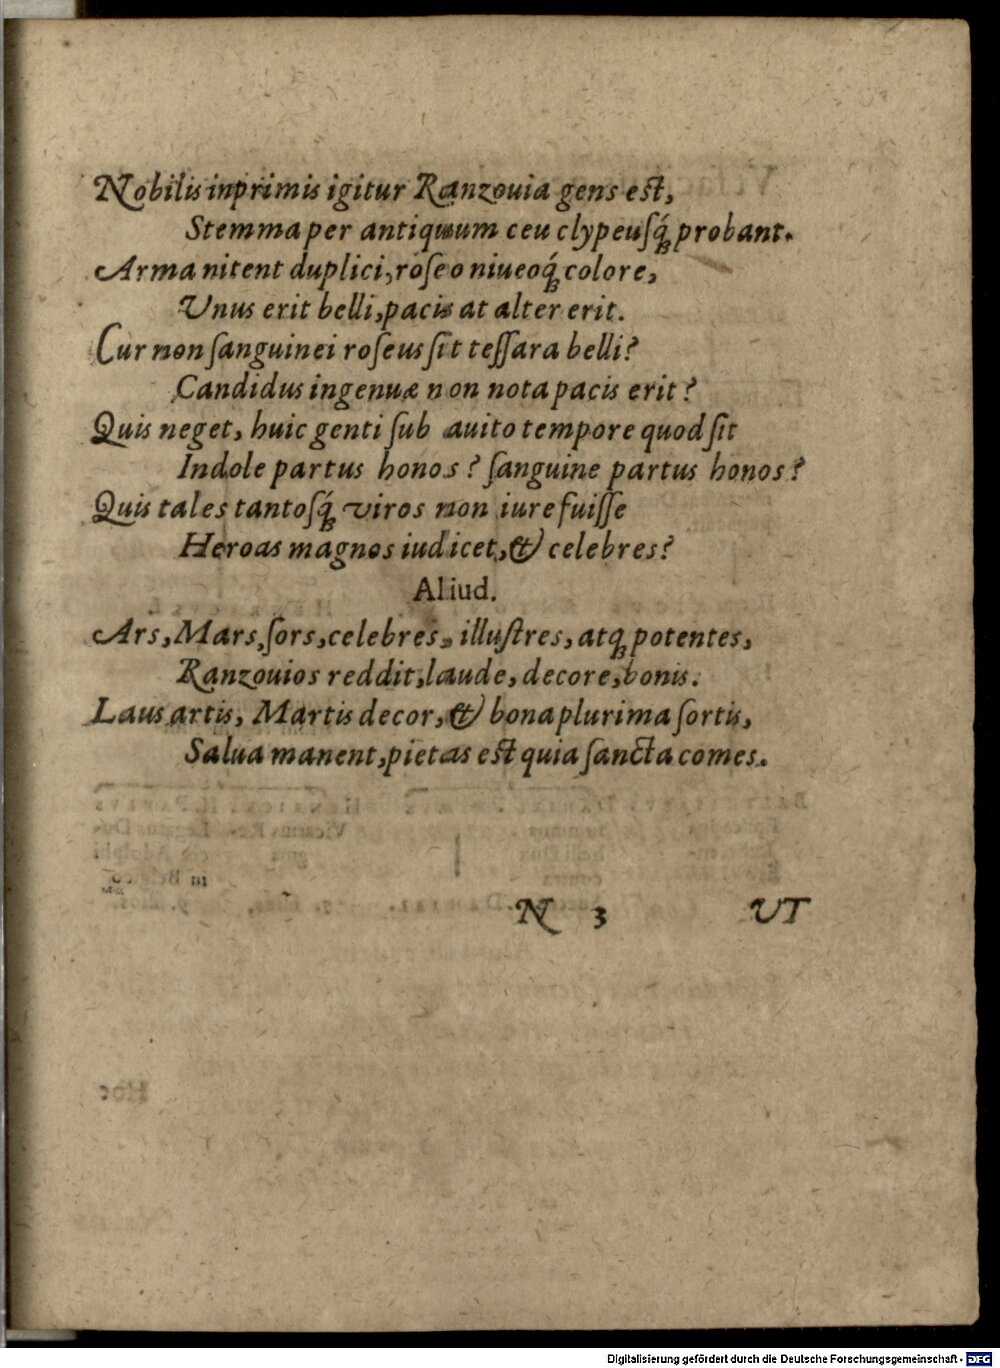 Nobilis inprimis igitur Ranzouia gens est,
Stemma per antiquum ceu clypeusq́ꝫ probant.
Arma nitent duplici, roseo niueoq́ꝫ colore,
Unus erit belli, pacis at alter erit.
Cur non ſanguinei roſeus ſit teſſara belli?
Candidus ingenuæ non nota pacis erit?
Quis neget, huic genti ſub auito tempore quod ſit
Indole partus honos? ſanguine partus honos?
Quis tales tantoſq́ꝫ viros non iure fuiſſe
Heroas magnos iudicet, & celebres?
Aliud.
Ars, Mars, ſors, celebres, illuſtres, atqꝫ potentes,
Ranzouios reddit, laude, decore, bonis.
Laus artis, Martis decor, & bona plurima ſortis,
Salua manent, pietas est quia ſancta comes.
N 3 UT
Digitalisierung gefördert durch die Deutsche Forschungsgemeinschaft - DFG